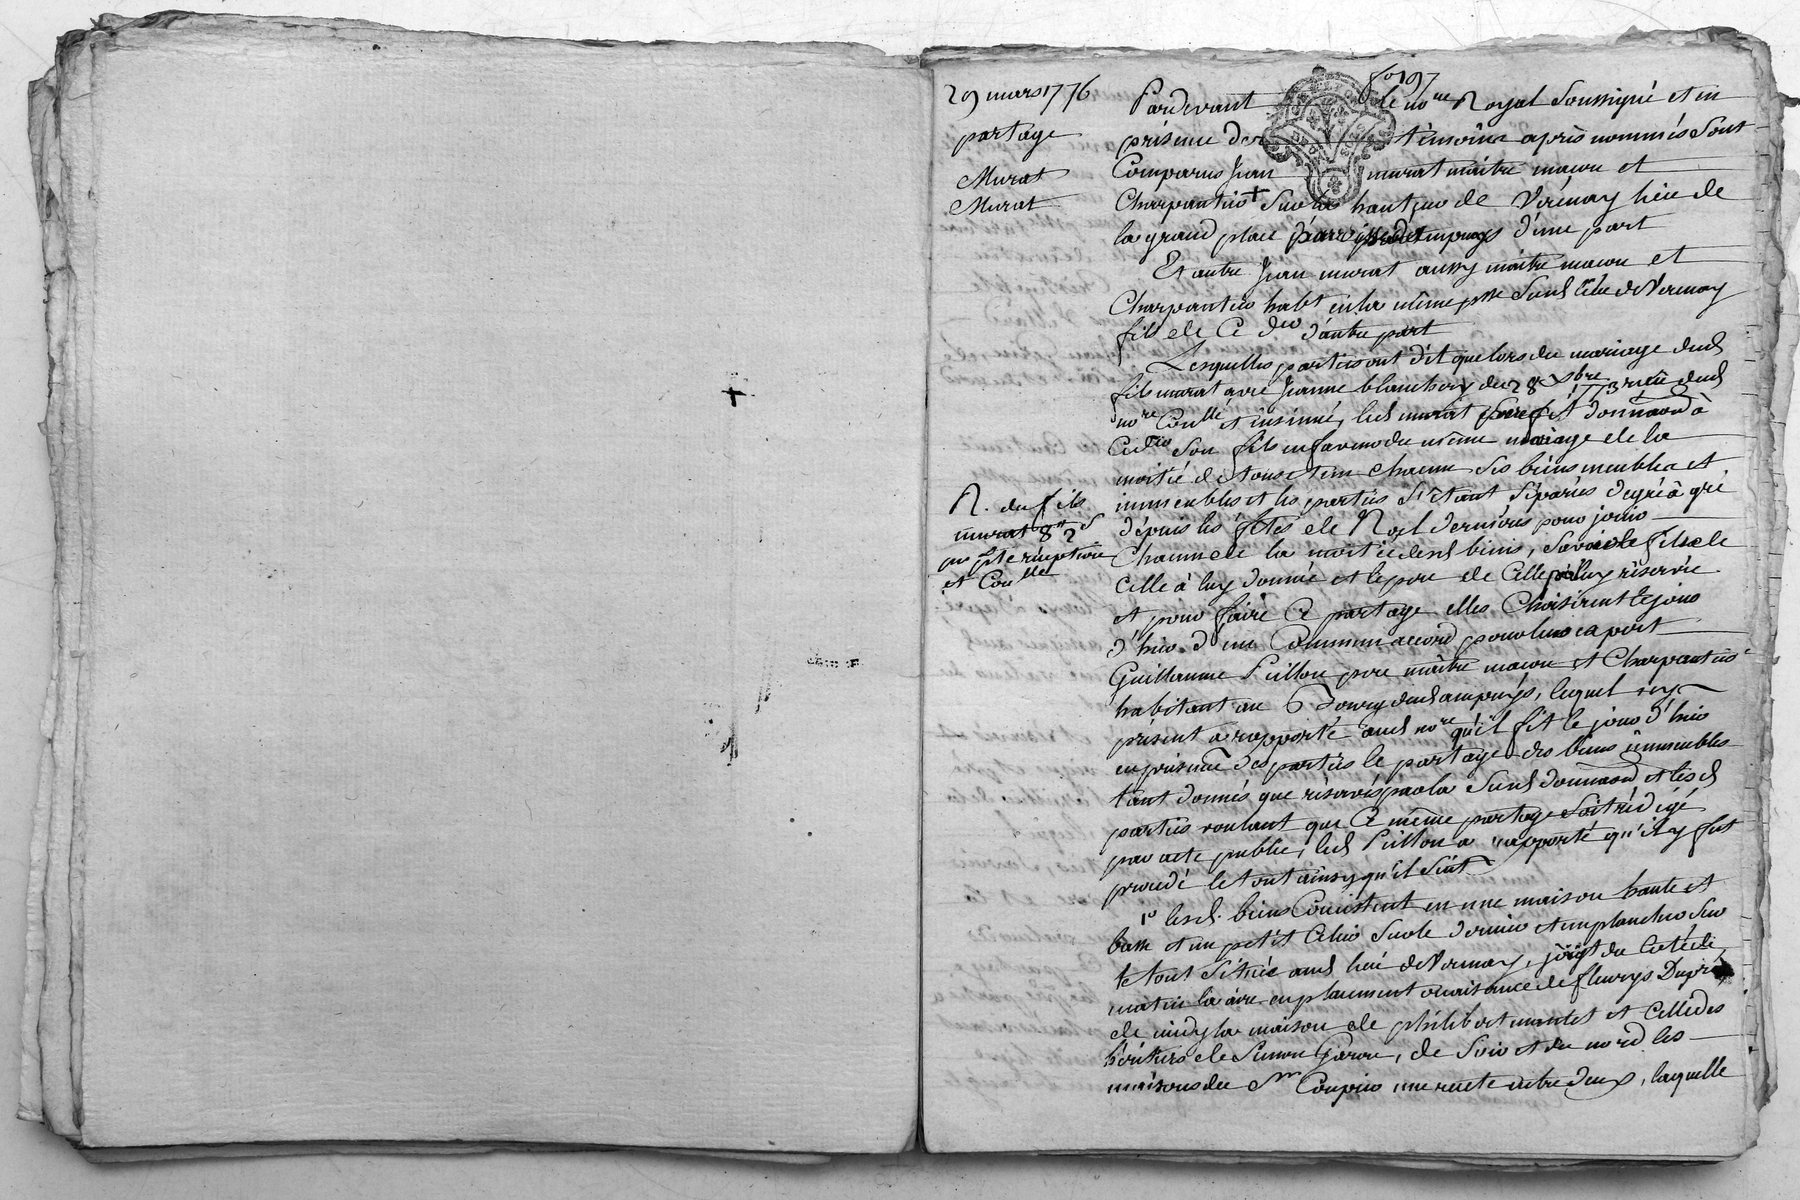 fo 197
29 mars 1776
partage
Murat
Murat
Pardevant le no.re Royal Soussigné et en
présence des témoins après nommés Sont
Comparus Jean murat maitre maçon et
Charpantier + Sur la hauteur de Vernay lieu de
la grand place d'une part
Et autre Jean murat aussy maitre macon et
Charpantier habt en la même psse Susd lieu de Vernay
fils de Ce der d'autre part
Lesquelles parties ont dit que lors du mariage dud
fils murat avec Jeanne blanchery du 28 Xbre 1773 recu dud
no.re Conllé et insinué, led murat pere fit donnaon à
Ced son fils en faveur du même mariage de la
moitié de tous et un chacun Ses biens meubles et
immeubles et les parties S'étant Séparées de gré à gré
dépuis les fêtes de Noel dernieres pour jouir
Chacune de la moitié desd biens, Savoir le fils de
Celle à luy donnée et le pere de Celle par luy réservée
et pour faire Ce partage elles Choisirent le jour
d'hier d'un Commun accord pour leur expert
Guillaume Pullion pere maitre macon et Charpantier
habitant au Bourg dud ampuys, lequel icy
présent a rapporté aud no.re qu'il fit le jour d'hier
en présence des parties le partage des biens immeubles
tant donnés que réservés par la Susd donnaon et lesd
parties voulant que Ce même partage Soit rédigé
par acte public, led Pullion a rapporté qu'il y fut
procédé le tout ainsy qu'il Suit
R. du fils
murat 8
et Conlle
1o lesd. biens Consistent en une maison haute et
basse et un petit Celier Sur le derrier et un plancher Sur
le tout Situé aud lieu de Vernay, joigt du Coté de
matin la aire en placement et aisance de fleurys Dupré,
de midy la maison de philibert mantet et Celle des
héritiers de Simon Giron, de Soir et du nord les
maisons du Sr Coupier une ruete entre deux, laquelle